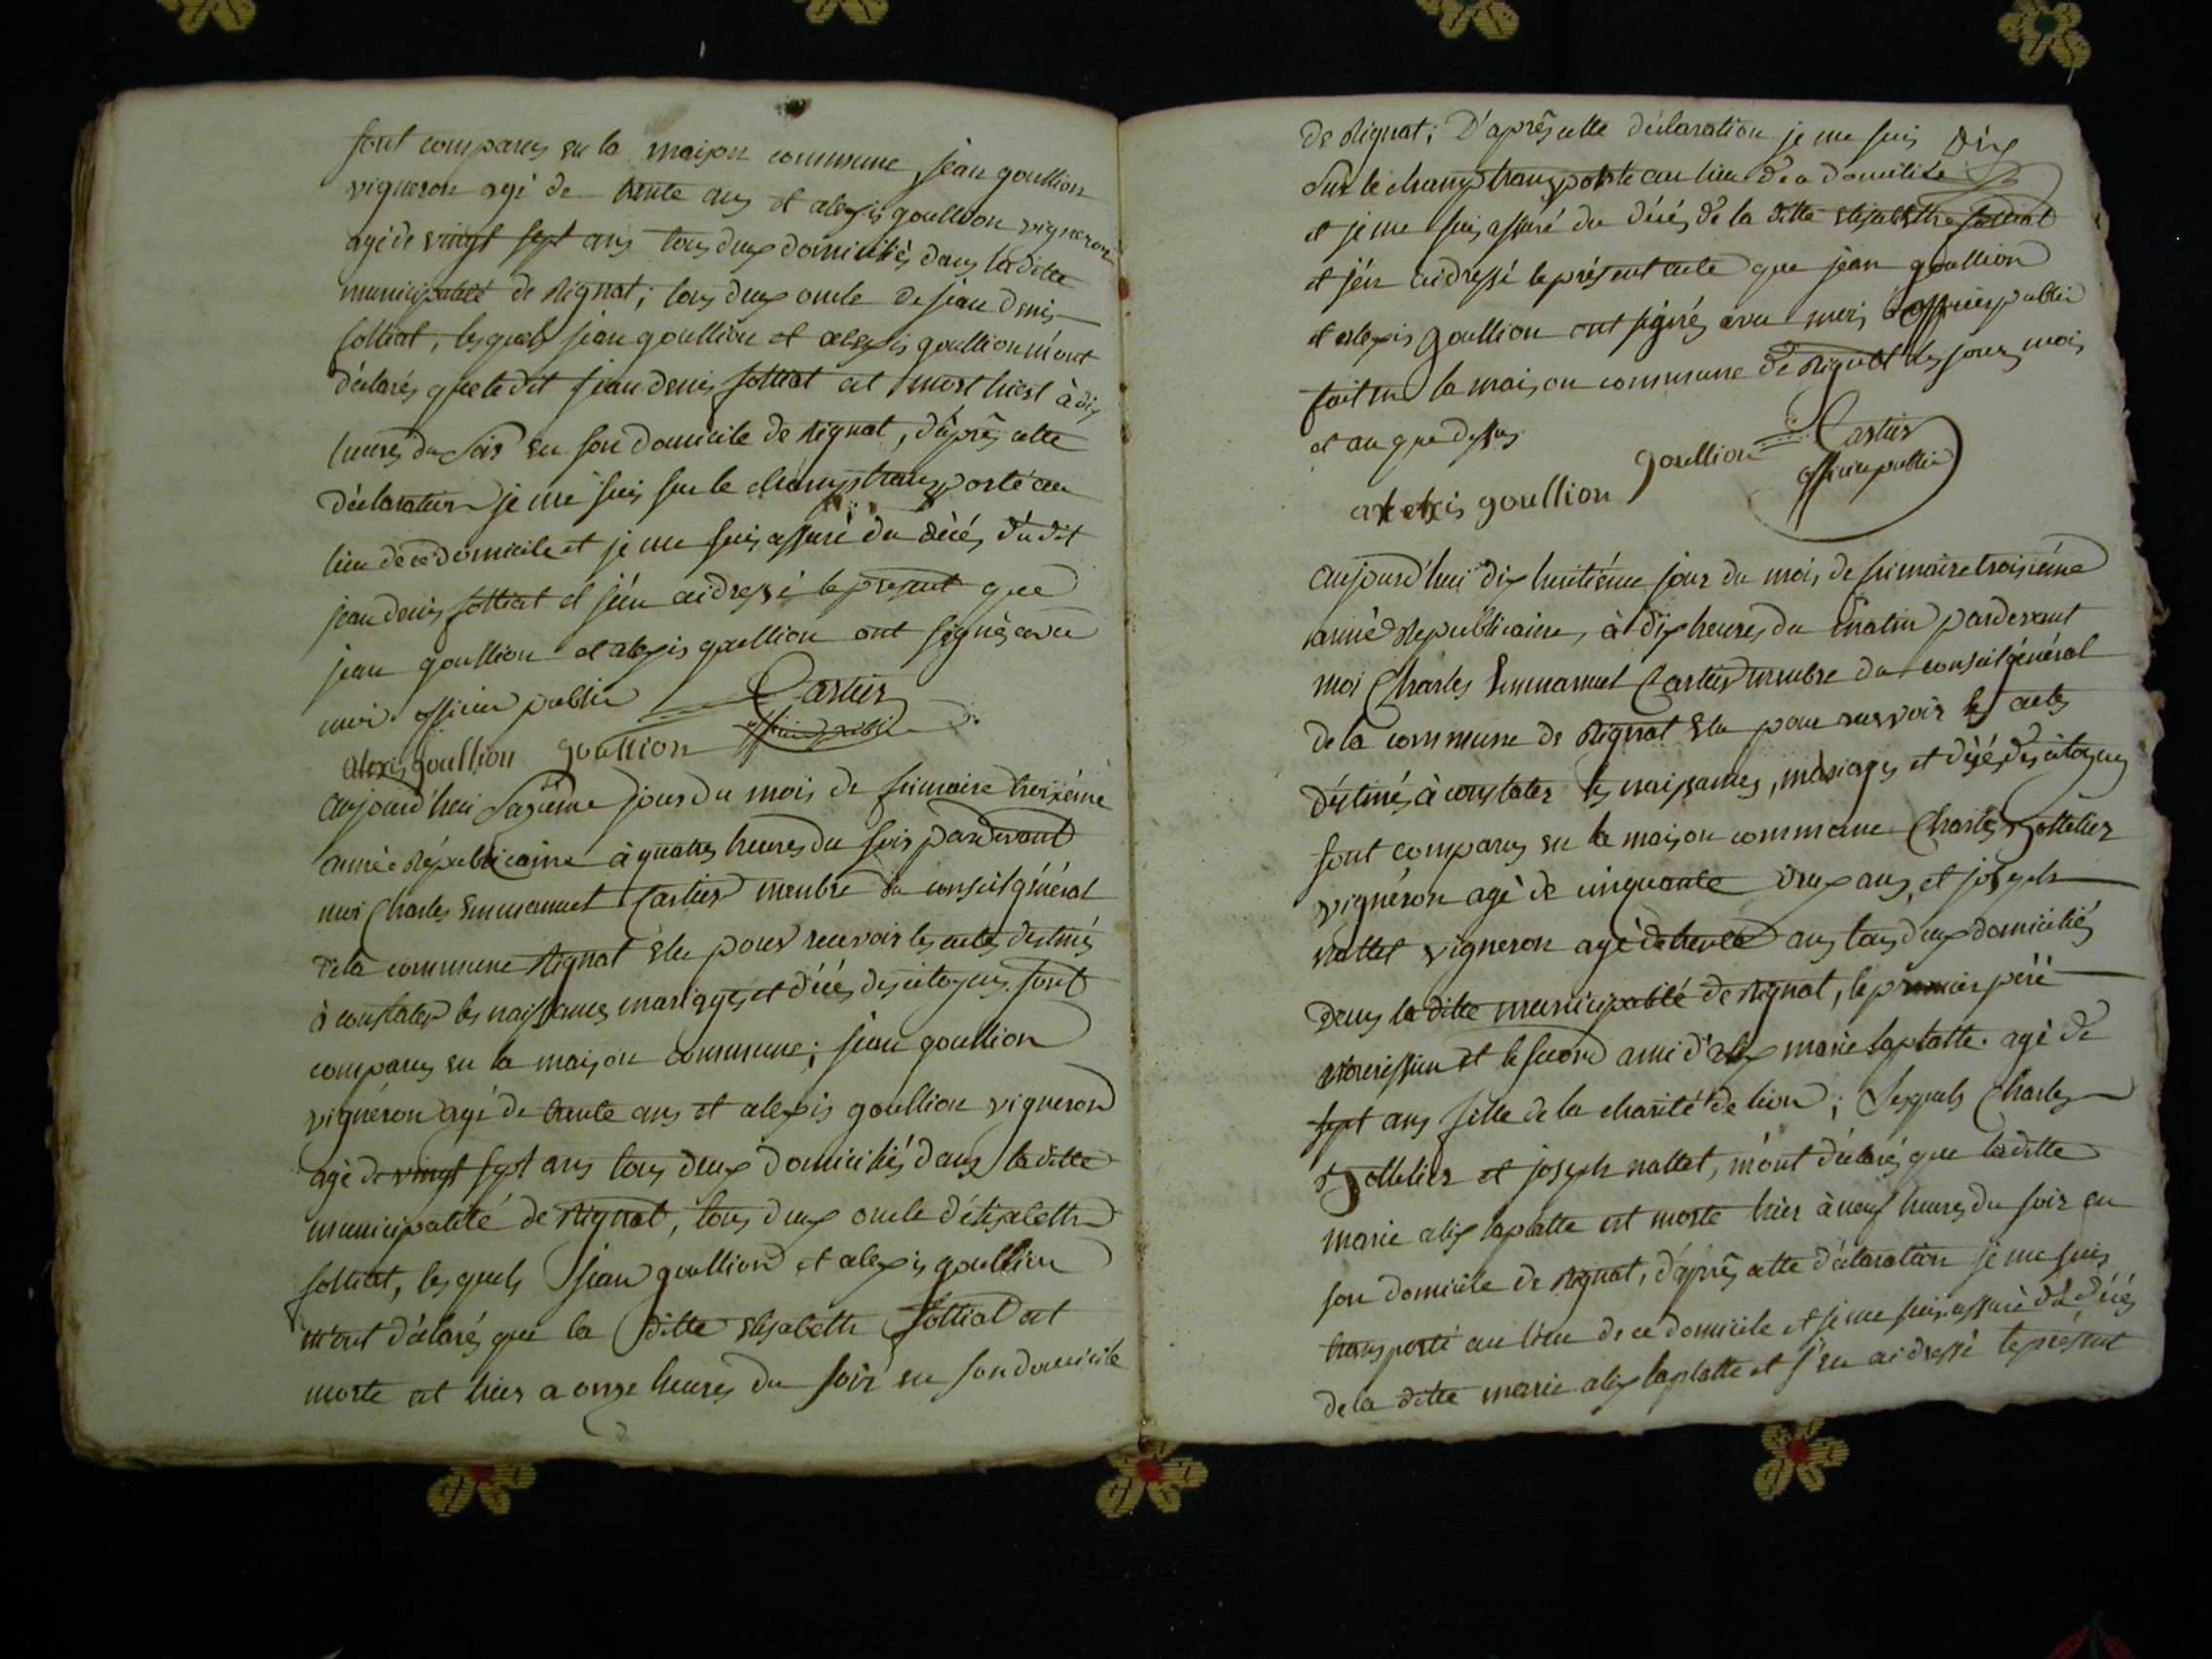 sont comparus en la maison commune, jean goullion
vigneron agé de trente ans et alexis goullion vigneron
agé de vingt sept ans tous deux domiciliés dans la ditte
municipalité de Rignat; tous deux oncle de jean denis
follliat, lesquels jean goullion et alexis goullion m'ont
déclarés que le dit jean denis folliat est mort hier à dix
heures du soir en son domicile de Rignat, d'après cette
déclaration je me suis sur le champ transporté au
lieu de ce domicile et je me suis assuré du décés du dit
jean denis folliat et j'én ai dressé le present que
jean goullion et alexis goullion ont signés avec
moi officier public Cartier
alexis goullion goullion officier public
aujourd'hui sazieme jour du mois de frimaire troisiéme
année Républicaine à quatres heures du soir pardevant
moi Charles Emmanuel Cartier membre du conseil général
de la commune Rignat élu pour recevoir les actes destinés
à constater les naissances mariages et décés des citoyens sont
comparus en la maison commune; jean goullion
vignéron agé de trente ans et alexis goullion vigneron
agé de vingt sept ans tous deux domiciliés dans la ditte
municipalité de Rignat, tous deux oncle d'élisabeth
folliat, lesquels jean goullion et alexis goullion
m'ont déclarés que la ditte elisabeth folliat est
morte et hier a onze heures du soir en son domicile
de Rignat; D'après cette déclaration je me suis Dix
sur le champ transporté au lieu de domicile
et je me suis assuré du décés de la ditte elisabeth folliat
et j'én ai dressé le présent acte que jean goullion
et alexis goullion ont signés avec moi officier public
fait en la maison commune de Rignat les jours mois
et an que dessus
goullion Cartier
alexis goullion officier public
aujourd'hui dix huitiéme jour du mois de frimaire troisiéme
année Republicaine, à dix heures du matin pardevant
moi Charles Emmanuel Cartier membre du conseil général
de la commune de Rignat élu pour recevoir les actes
déstinés à constater les naissances, mariages et décés des citoyens
sont comparus en la maison commune Charles
vignéron agé de cinquante deux ans, et joseph
nallet vigneron agé de trente ans tous deux domiciliés
dans la ditte municipalité de Rignat, le premier pére
nourissier et le second ami d'alix marie laplatte agé de
sept ans fille de la charité de lion; Lesquels Charles
et joseph nallet, m'ont déclarés que la ditte
marie alix laplatte est morte hier à neuf heures du soir en
son domicile de Rignat, d'après cette déclaration je me suis
transporté au lieu de ce domicile et je me suis assuré du décés
de la ditte marie alix laplatte et j'en ai dressé le présent